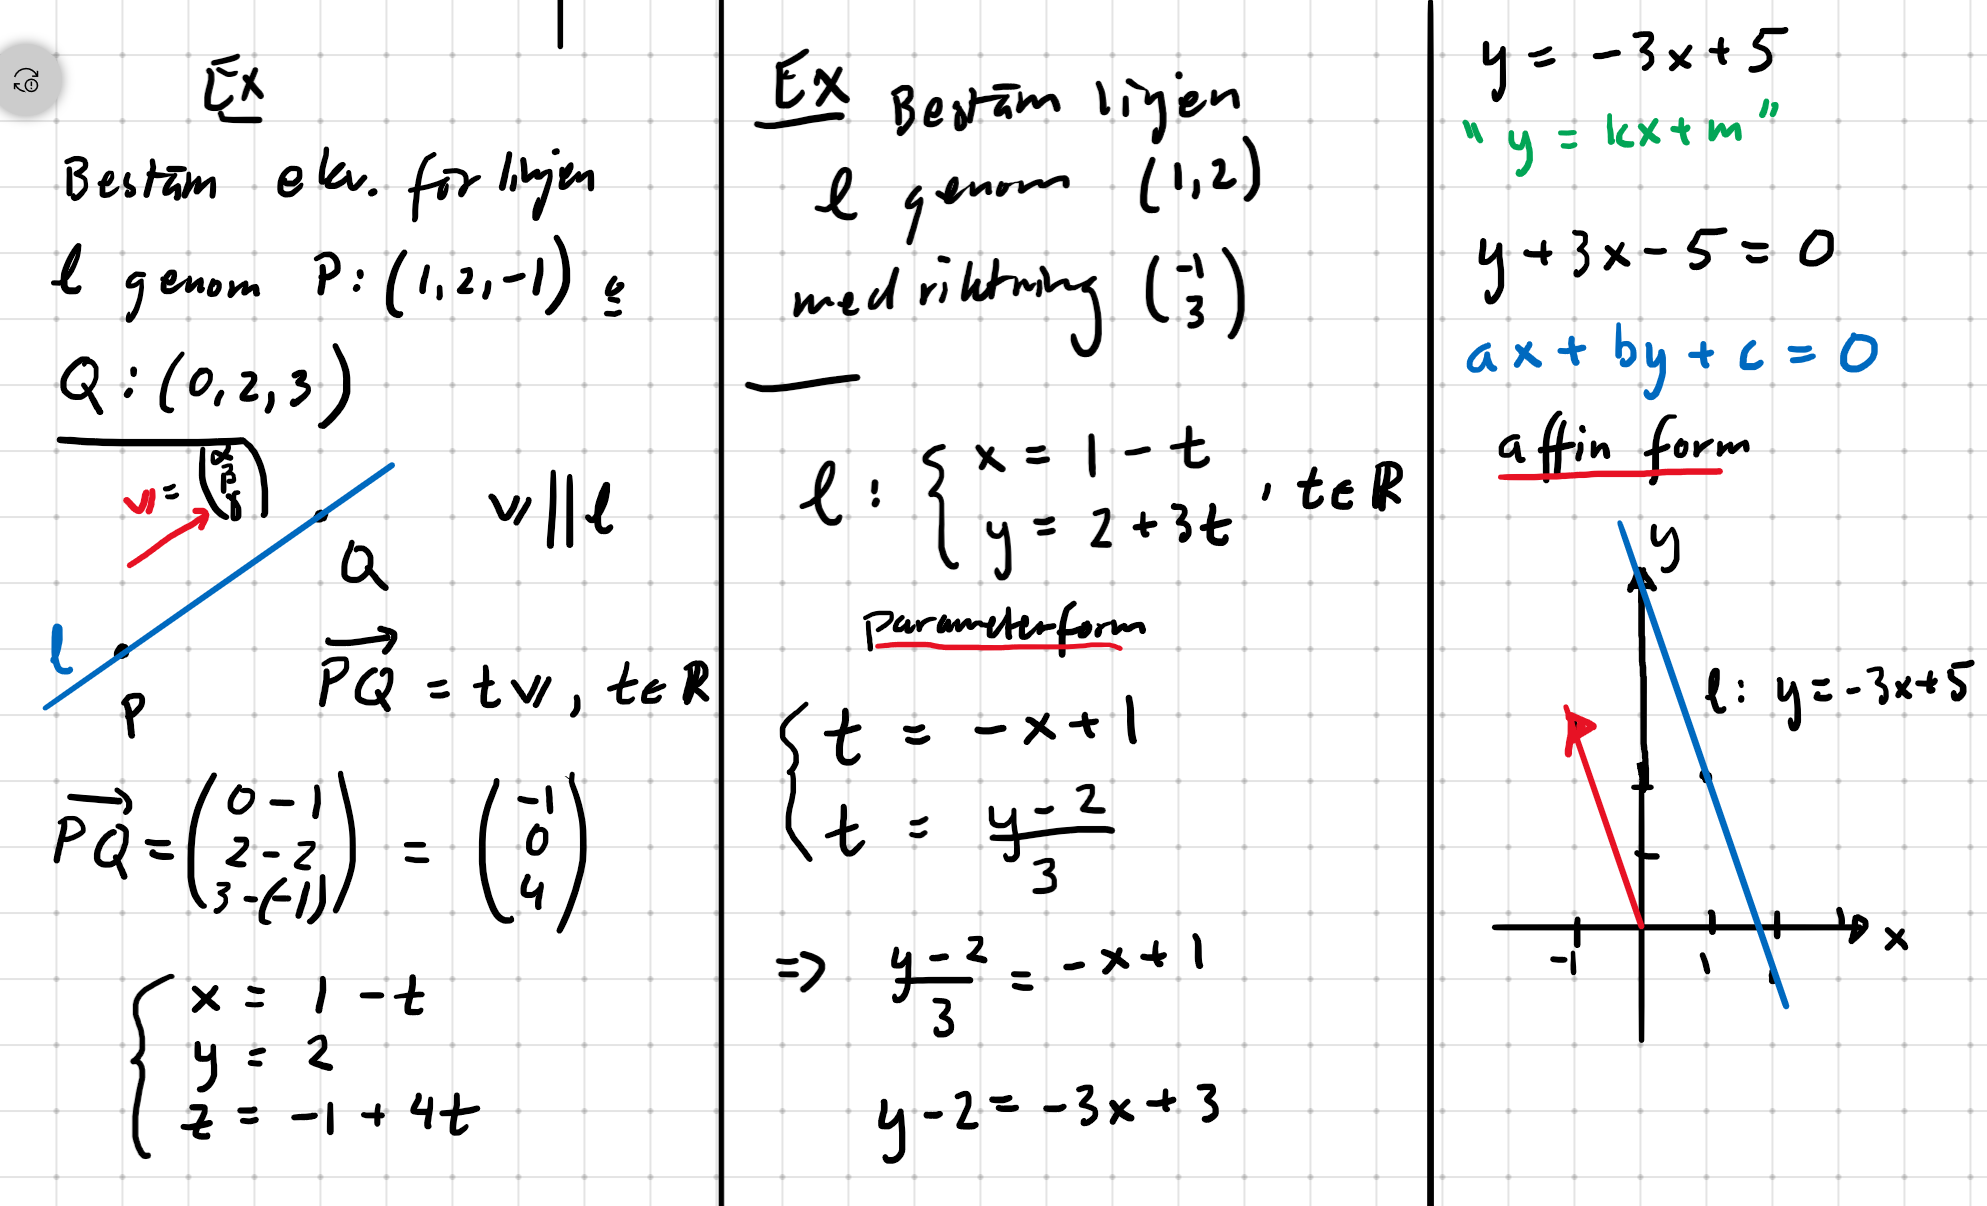 Ex
Bestäm ekv. för linjen
l genom P: (1, 2, -1) &
Q : (0, 2, 3)
v = (α β γ)
v || l
Q
l
P
PQ = t v, t ∈ ℝ
PQ = (0 - 1, 2 - 2, 3 - (-1)) = (-1, 0, 4)
x = 1 - t
y = 2
z = -1 + 4t
Ex Bestäm linjen
l genom (1, 2)
med riktning (-1 3)
l : { x = 1 - t
y = 2 + 3t , t ∈ ℝ
Parameterform
t = -x + 1
t = (y - 2)/3
=> (y - 2)/3 = -x + 1
y - 2 = -3x + 3
y = -3x + 5
"y = kx + m"
y + 3x - 5 = 0
ax + by + c = 0
affin form
y
l: y = -3x + 5
x
-1
1